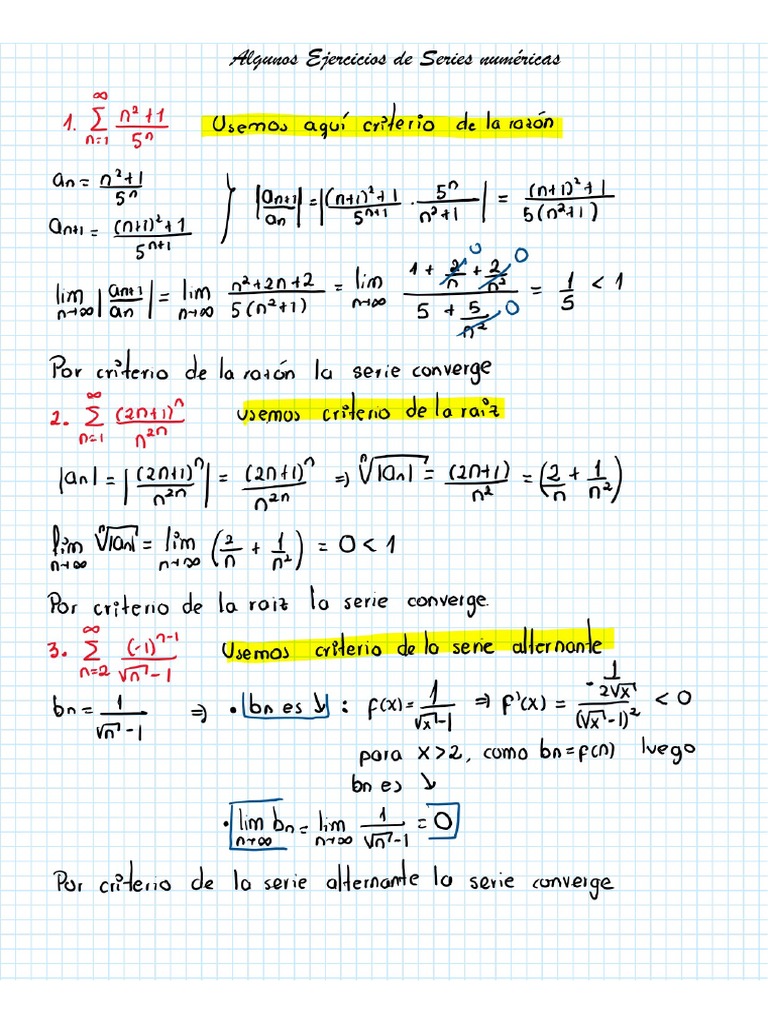 Algunos Ejercicios de Series numéricas
1. ∑_{n=1}^{∞} (n²+1)/5ⁿ Usemos aquí criterio de la razón
aₙ = (n²+1)/5ⁿ
aₙ₊₁ = ((n+1)²+1)/5ⁿ⁺¹ } |aₙ₊₁/aₙ| = |((n+1)²+1)/5ⁿ⁺¹ · 5ⁿ/(n²+1)| = ((n+1)²+1)/(5(n²+1))
lim_{n→∞} |aₙ₊₁/aₙ| = lim_{n→∞} (n²+2n+2)/(5(n²+1)) = lim_{n→∞} (1 + 2/n⁰ + 2/n²⁰)/(5 + 5/n² 0) = 1/5 < 1
Por criterio de la razón la serie converge
2. ∑_{n=1}^{∞} (2n+1)ⁿ/n²ⁿ usemos criterio de la raiz
|aₙ| = |(2n+1)ⁿ/n²ⁿ| = (2n+1)ⁿ/n²ⁿ ⇒ ⁿ√|aₙ| = (2n+1)/n² = (2/n + 1/n²)
lim_{n→∞} ⁿ√|aₙ| = lim_{n→∞} (2/n + 1/n²) = 0 < 1
Por criterio de la raiz la serie converge.
3. ∑_{n=2}^{∞} (-1)ⁿ⁻¹/(√n - 1) Usemos criterio de la serie alternante
bₙ = 1/(√n - 1) ⇒ • bₙ es ↓ : f(x) = 1/(√x - 1) ⇒ f'(x) = (-1/(2√x))/(√x - 1)² < 0
para x>2, como bₙ=f(n) luego
bₙ es ↓
• lim_{n→∞} bₙ = lim_{n→∞} 1/(√n - 1) = 0
Por criterio de la serie alternante la serie converge